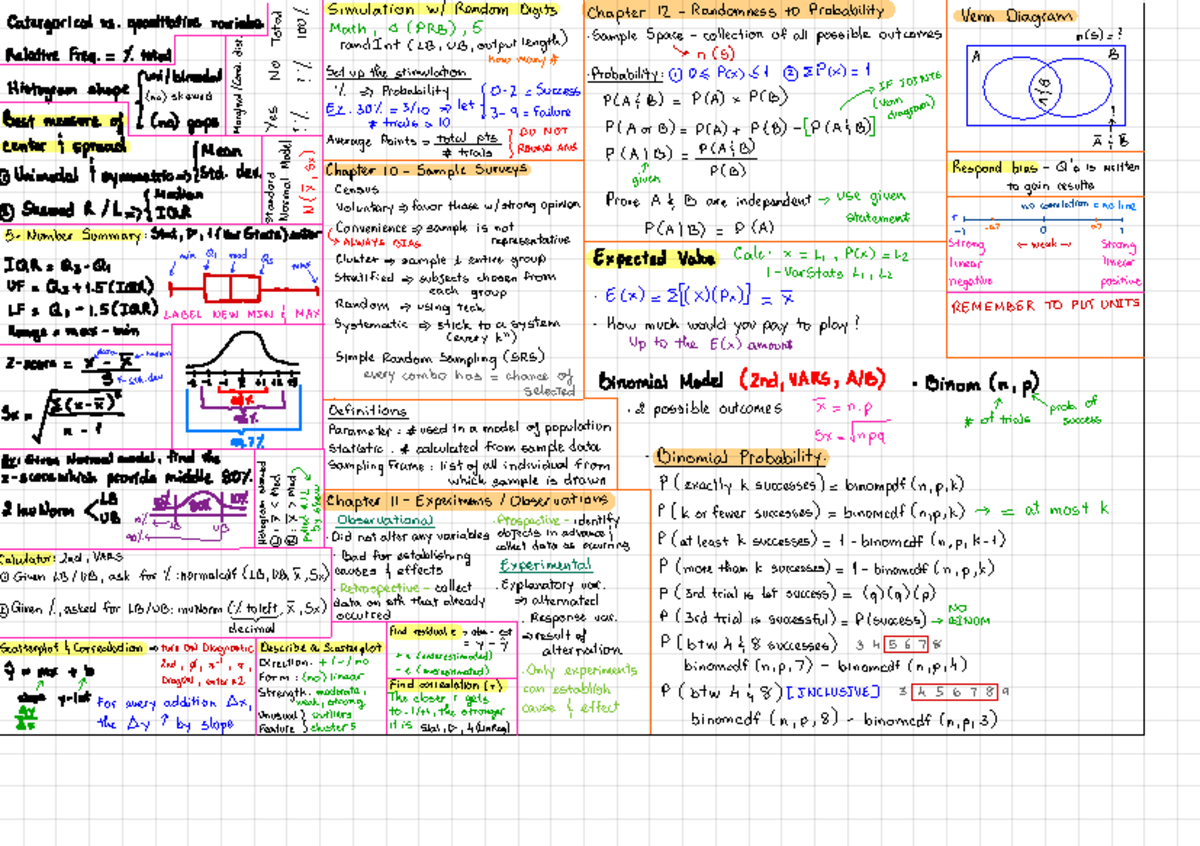 Caturgorical vs. quantitative variables
Relative Freq. = % total
Histogram shape { uni/bimodal
(no) skewed
(no) gaps
Marginal/Cond. dist.
Yes No Total
% % 100%
Best measure of
center & spread
① Unimodal & symmetric => { Mean
Std. dev.
② Skewed R / L => { Median
IQR
Standard
Normal Model
N(x̄, Sx)
5- Number Summary: Stat, ▷, 1 (Var Stats), enter
IQR = Q3 - Q1
UF = Q3 + 1.5(IQR)
LF = Q1 - 1.5(IQR)
Range = max - min
min Q1 med Q3 max
LABEL NEW MIN & MAX
z-score = x - x̄
S
Sx = √ Σ(x-x̄)²
n - 1
68%
95%
99.7%
Ex: Given Normal model, find the
z-scores which provide middle 80%.
2 InvNorm < LB
UB
10% 80% 10%
LB UB
90%
Calculator: 2nd, VARS
① Given LB/UB, ask for %: normalcdf (LB, UB, x̄, Sx)
② Given %, asked for LB/UB: invNorm (% to left, x̄, Sx)
decimal
Scatterplot & Correlation => turn ON Diagnostic
ŷ = mx + b
slope y-int
Δy
Δx
For every addition Δx,
the Δy ↑ by slope
Describe a Scatterplot
Direction: + / - / no
Form: (no) linear
Strength: moderate,
weak, strong
Unusual } outliers
Feature } clusters
Find residual e = obs - est
= y - ŷ
+ e (underestimated)
- e (overestimated)
Find correlation (r)
The closer r gets
to -1/+1, the stronger
it is Stat, ▷, 4 (LinReg)
Simulation w/ Random Digits
Math, ◁ (PRB), 5
randInt (LB, UB, output length)
how many #
Set up the stimulation
% => Probability
Ex. 30% = 3/10 => let { 0-2 = Success
3-9 = Failure
# trials = 10
Average Points = total pts
# trials
} DO NOT
ROUND ANS
Chapter 10 - Sample Surveys
Census
Voluntary => favor those w/ strong opinion
Convenience => sample is not
representative
↳ ALWAYS BIAS
Cluster => sample 1 entire group
Stratified => subjects chosen from
each group
Random => using tech
Systematic => stick to a system
(every kⁿ)
Simple Random Sampling (SRS)
every combo has = chance of
selected
Definitions
Parameter: # used in a model of population
Statistic: # calculated from sample data
Sampling Frame: list of all individual from
which sample is drawn
Chapter 11 - Experiments / Observations
Observational
· Did not alter any variables
· Bad for establishing
causes & effects
· Retrospective - collect
data on sth that already
occurred
· Prospective - identify
objects in advance &
collect data as occuring
Experimental
· Explanatory var.
=> alternated
· Response var.
=> result of
alternation
· Only experiments
can establish
cause & effect
Chapter 12 - Randomness to Probability
· Sample Space - collection of all possible outcomes
↳ n(S)
· Probability: ① 0 ≤ P(x) ≤ 1 ② ΣP(x) = 1
P(A & B) = P(A) × P(B)
IF JOINTS
(Venn
diagram)
P(A or B) = P(A) + P(B) - [P(A & B)]
P(A | B) = P(A & B)
P(B)
given
Prove A & B are independent → use given
statement
P(A | B) = P(A)
Expected Value Calc: x = L1, P(x) = L2
1-VarStats L1, L2
· E(x) = Σ[(x)(Px)] = x̄
· How much would you pay to play?
Up to the E(x) amount
Binomial Model (2nd, VARS, A/B) · Binom (n, p)
# of trials prob. of
success
· 2 possible outcomes
x̄ = n.p
Sx = √npq
Binomial Probability:
P (exactly k successes) = binompdf (n, p, k)
P (k or fewer successes) = binomcdf (n, p, k) → = at most k
P (at least k successes) = 1 - binomcdf (n, p, k-1)
P (more than k successes) = 1 - binomcdf (n, p, k)
P (3rd trial is 1st success) = (q)(q)(p)
P (3rd trial is successful) = P(success) → NO
BINOM
P (btw 4 & 8 successes) 3 4 5 6 7 8
binomcdf (n, p, 7) - binomcdf (n, p, 4)
P (btw 4 & 8) [INCLUSIVE] 3 4 5 6 7 8 9
binomcdf (n, p, 8) - binomcdf (n, p, 3)
Venn Diagram
n(s) = ?
A B
A & B
Ā & B̄
Respond bias - Q's is written
to gain results
no correlation = no line
r
-1 0 1
Strong
linear
negative
← weak →
Strong
linear
positive
REMEMBER TO PUT UNITS